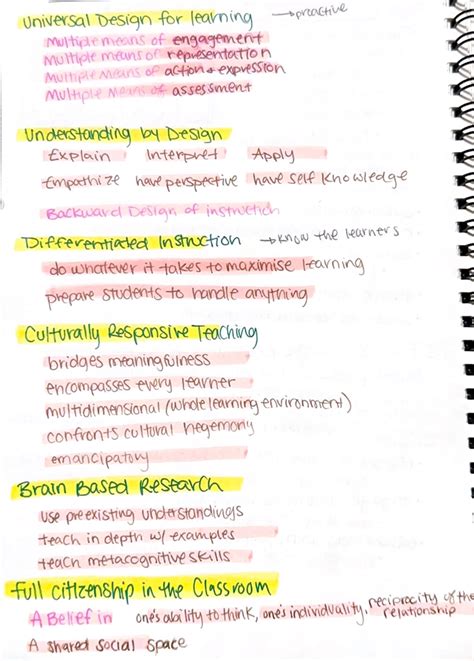 Universal Design for learning → proactive
Multiple means of engagement
Multiple means of representation
Multiple Means of action + expression
Multiple Means of assessment
Understanding by Design
Explain Interpret Apply
Empathize have perspective have self knowledge
Backward Design of instruction
Differentiated Instruction → know the learners
do whatever it takes to maximise learning
prepare students to handle anything
Culturally Responsive Teaching
bridges meaningfulness
encompasses every learner
multidimensional (whole learning environment)
confronts cultural hegemony
emancipatory
Brain Based Research
use preexisting understandings
teach in depth w/ examples
teach metacognitive skills
Full citizenship in the Classroom
A Belief in one's ability to think, one's individuality, reciprocity of the relationship
A shared social space